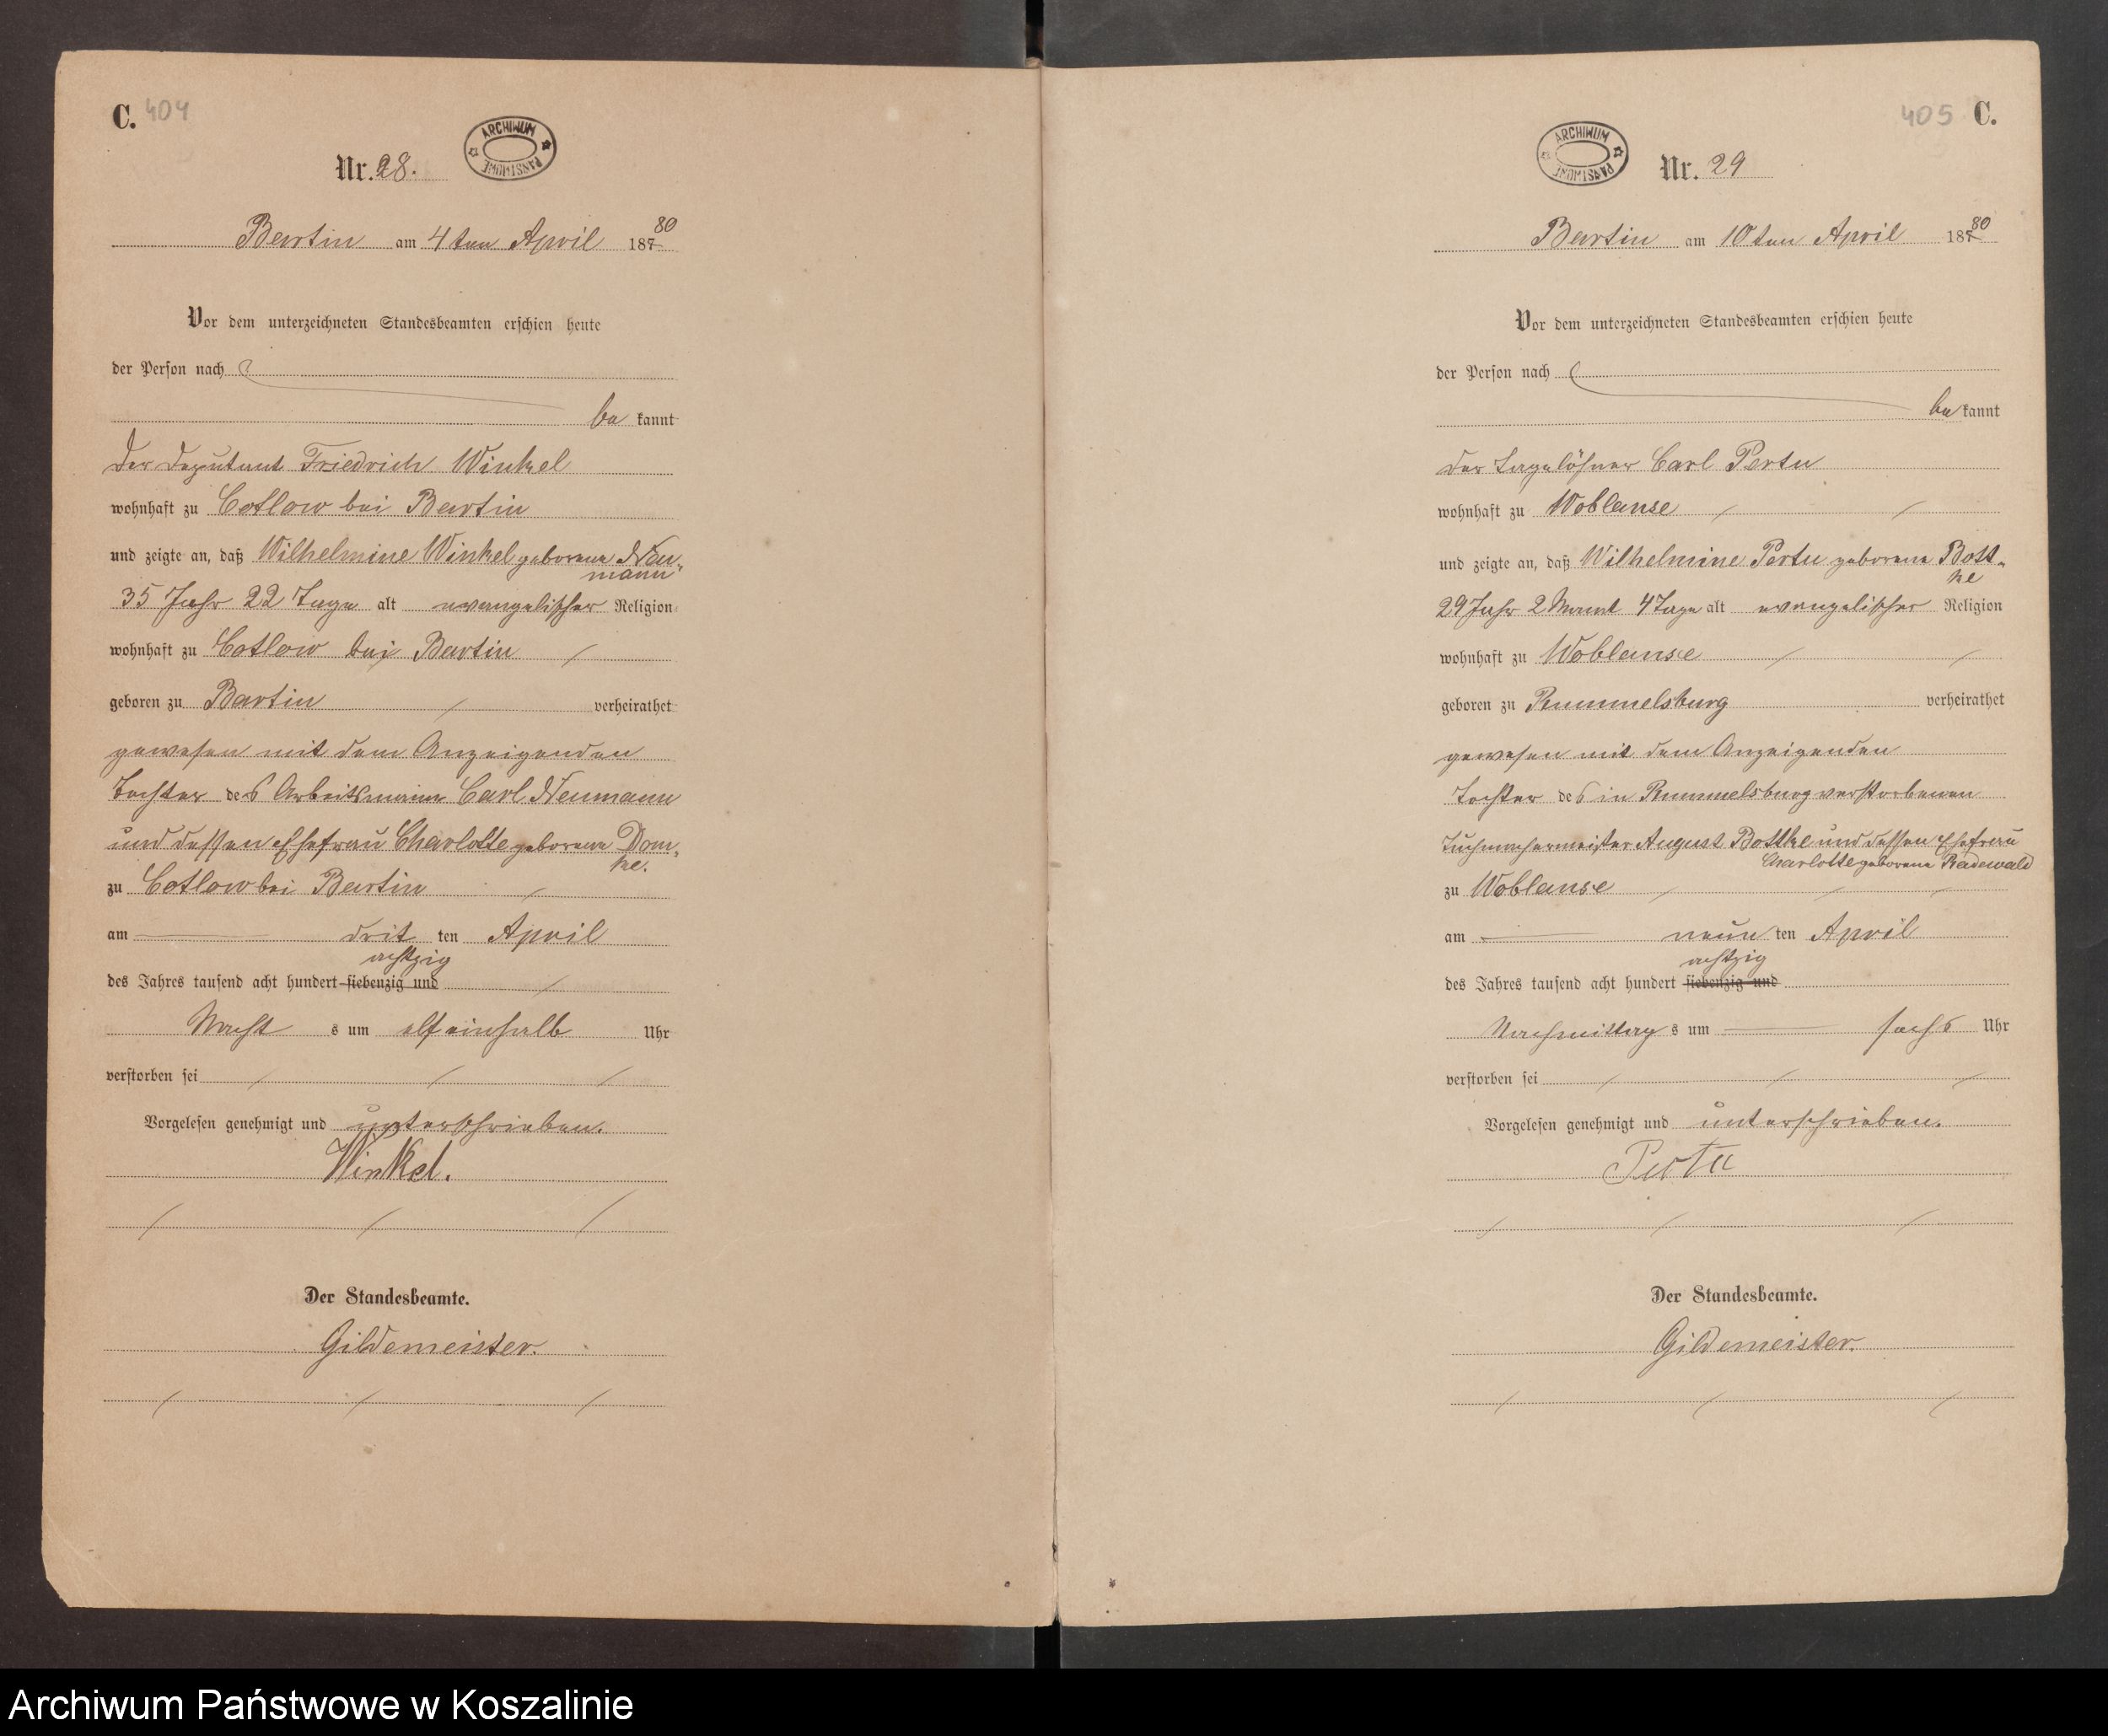 C. 404
ARCHIWUM PAŃSTWOWE
Nr. 28.
Bartin am 4ten April 18780
Vor dem unterzeichneten Standesbeamten erschien heute
der Person nach
be kannt
der Deputant Friedrich Winkel
wohnhaft zu Cotlow bei Bartin
und zeigte an, daß Wilhelmine Winkel geborene Neu-
mann
35 Jahr 22 Tage alt evangelischer Religion
wohnhaft zu Cotlow bei Bartin
geboren zu Bartin verheirathet
gewesen mit dem Anzeigenden
Tochter des Arbeitsmann Carl Neumann
und dessen Ehefrau Charlotte geborene Dom-
ke.
zu Cotlow bei Bartin
am drit ten April
achtzig
des Jahres tausend acht hundert siebenzig und
Nacht s um elfeinhalb Uhr
verstorben sei
Vorgelesen genehmigt und unterschrieben.
Winkel.
Der Standesbeamte.
Gildemeister.
405 C.
ARCHIWUM PAŃSTWOWE
Nr. 29
Bartin am 10ten April 18780
Vor dem unterzeichneten Standesbeamten erschien heute
der Person nach
be kannt
der Tagelöhner Carl Perte
wohnhaft zu Woblanse
und zeigte an, daß Wilhelmine Perte geborene Bott-
ke
29 Jahr 2 Monat 4 Tage alt evangelischer Religion
wohnhaft zu Woblanse
geboren zu Rummelsburg verheirathet
gewesen mit dem Anzeigenden
Tochter des in Rummelsburg verstorbenen
Tuchmachermeister August Bottke und dessen Ehefrau
Charlotte geborene Radewald
zu Woblanse
am neun ten April
achtzig
des Jahres tausend acht hundert siebenzig und
Nachmittag s um sechs Uhr
verstorben sei
Vorgelesen genehmigt und unterschrieben.
Perte
Der Standesbeamte.
Gildemeister.
Archiwum Państwowe w Koszalinie